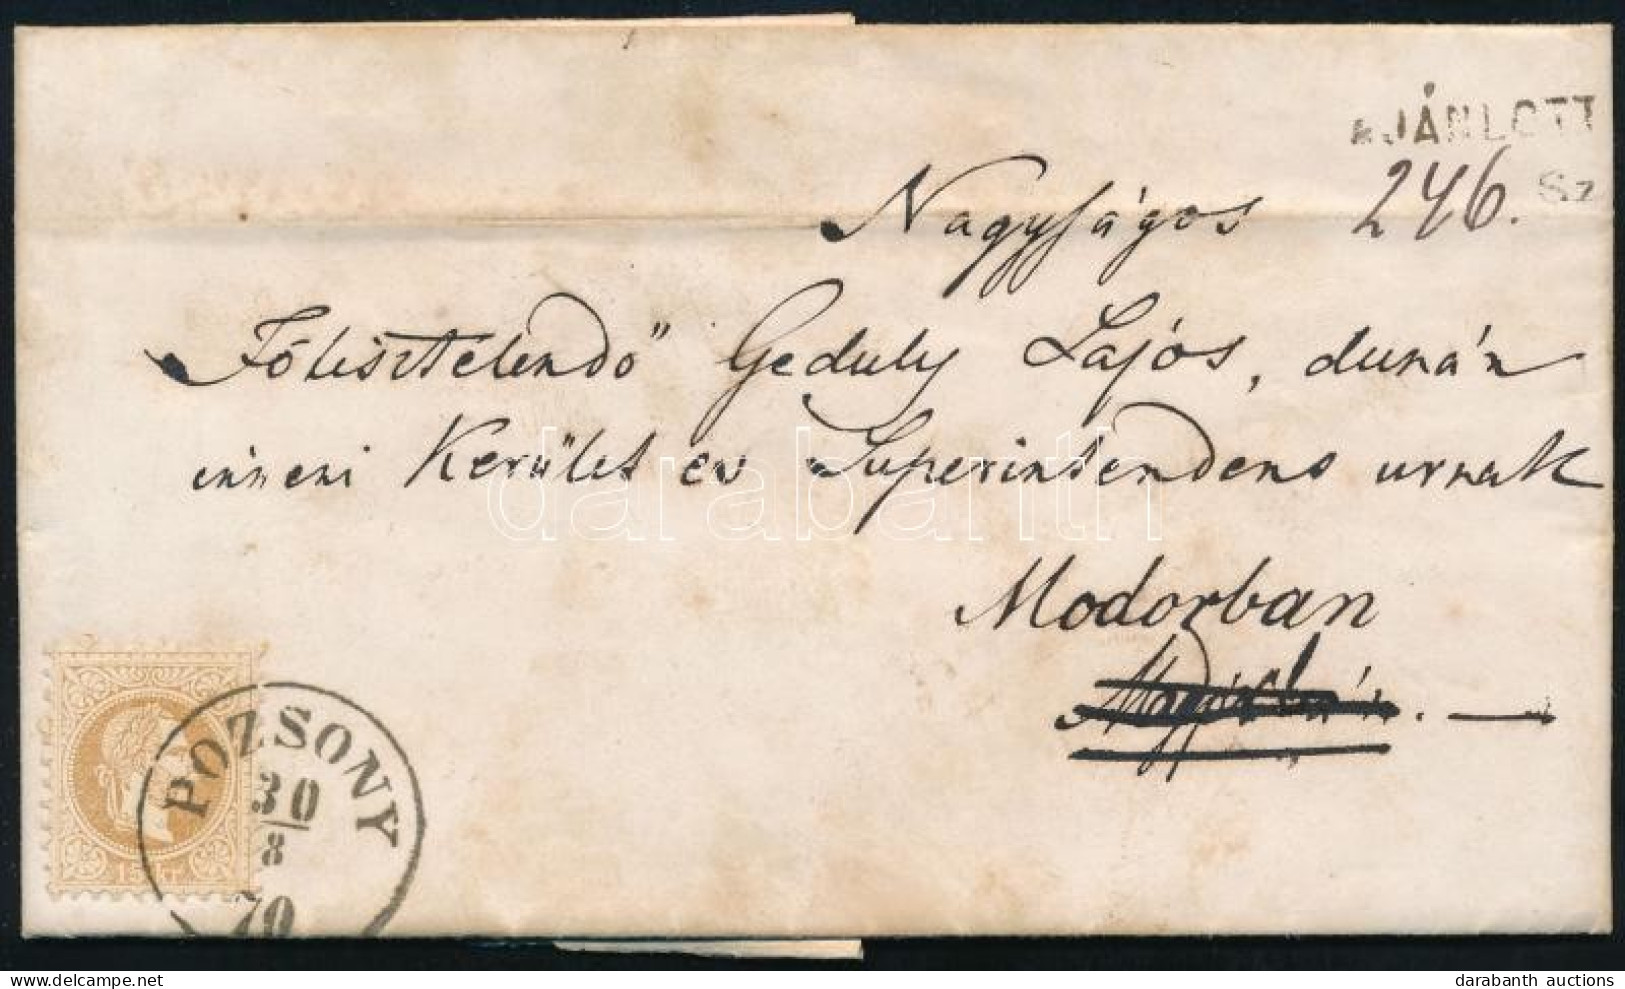 AJÁNLOTT
246. Sz
Nagyságos
Főtisztelendő" Geduly Lajós, dunán
inneni Kerület ev Superintendens urnak
Modorban
POZSONY
30
8
70
15 kr
darabanth
darabanth auctions